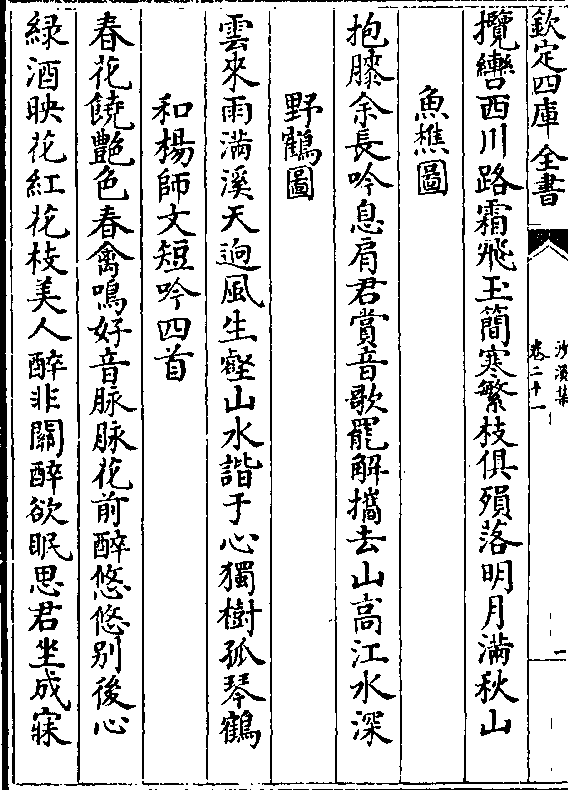 欽定四庫全書
沙溪集
卷二十一
一
攬轡西川路霜飛玉簡寒繁枝俱殞落明月滿秋山
魚樵圖
抱膝余長吟息肩君賞音歌罷解攜去山高江水深
野鶴圖
雲來雨滿溪天逈風生壑山水諧于心獨樹孤琴鶴
和楊師文短吟四首
春花饒艶色春禽鳴好音脉脉花前醉悠悠别後心
緑酒映花紅花枝美人醉非關醉欲眠思君坐成寐